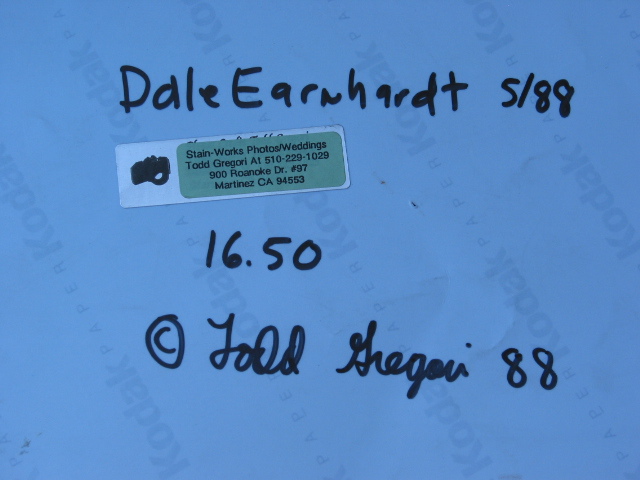 Dale Earnhardt 5/88
Stain-Works Photos/Weddings
Todd Gregori At 510-229-1029
900 Roanoke Dr. #97
Martinez CA 94553
16.50
© Todd Gregori 88
Kodak PAPER Kodak PAPER Kodak